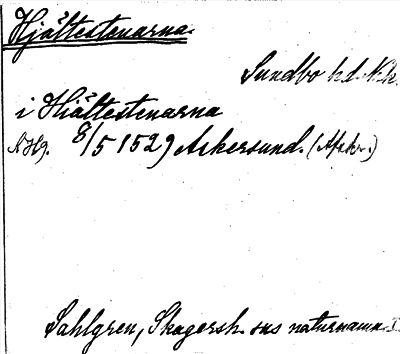 Hjältestenarna.
Sundbo hd. Nk.
i Hjältestenarna
NHg. 8/5 1529 Askersund. (Afskr.)
Sahlgren, Skagersh. sns naturnamn I.